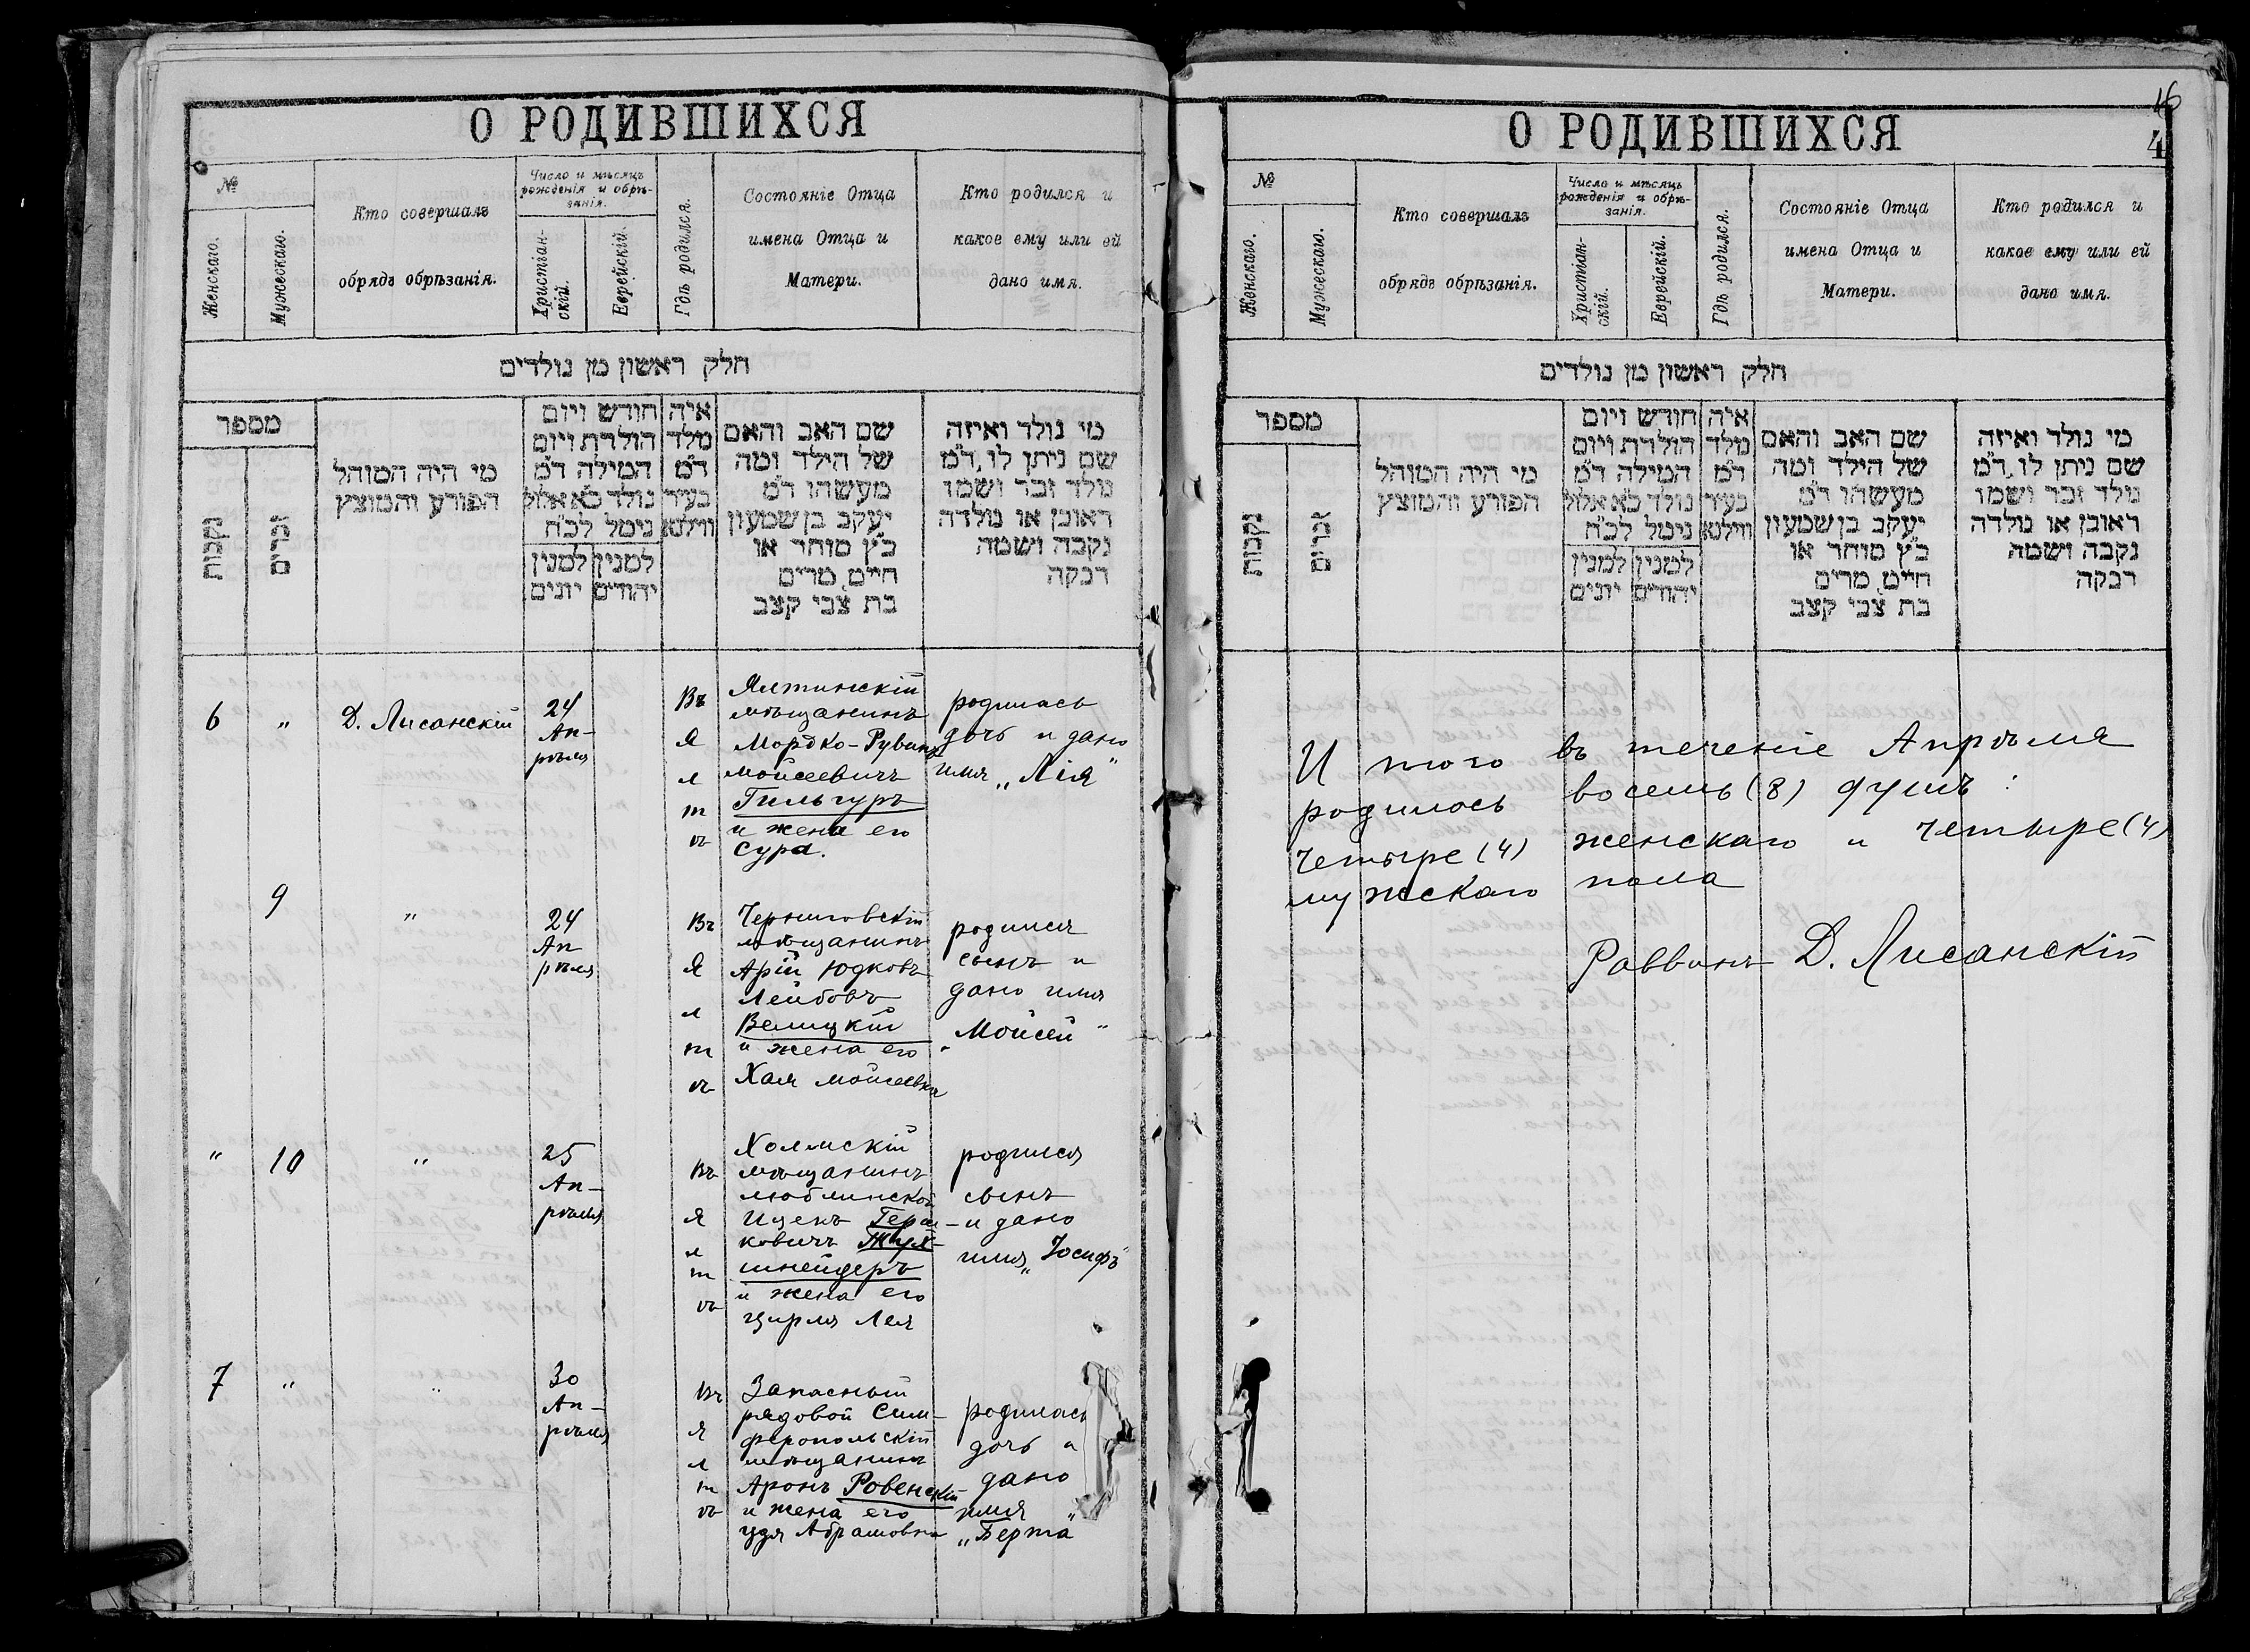 О РОДИВШИХСЯ
№
Женскаго.
Мужескаго.
Кто совершалъ
обрядъ обрѣзанія.
Число и мѣсяцъ
рожденія и обрѣ-
занія.
Христіан-
скій.
Еврейскій.
Гдѣ родился.
Состояніе Отца
имена Отца и
Матери.
Кто родился и
какое ему или ей
дано имя.
חלק ראשון מן נולדים
מספר
נקבות
זכרים
מי היה המוהל
הפורע והמוצץ
חודש ויום
הולדת ויום
המילה ד"מ
נולד כ"א אלול
נימל לכ"ח
למנין
יהודים
למנין
יונים
איה
מלד
ד"מ
בעיר
ווילנא
שם האב והאם
של הילד ומה
מעשהו ד"מ
יעקב בן שמעון
כ"ץ סוחר או
חיים, מרים
בת צבי קצב
מי נולד ואיזה
שם ניתן לו, ד"מ
נולד זכר ושמו
ראובן או נולדה
נקבה ושמה
רבקה
6 " Д. Лисанскій
24
Ап-
рѣля
Въ
Я
л
т
ѣ
Ялтинскій
мѣщанинъ
Мордко-Рувинъ
Мойсеевичъ
Гильгуръ
и жена его
Сура.
родилась
дочь и дано
имя „Лія"
9 "
24
Ап
рѣля
Въ
Я
л
т
ѣ
Черниговскій
мѣщанинъ
Арій Юдковъ
Лейбовъ
Велицкій
и жена его
Хая Мойсеевна
родился
сынъ и
дано имя
„Мойсей"
" 10 "
25
Ап-
рѣля
Въ
Я
л
т
ѣ
Холмскій
мѣщанинъ
люблинской
Ицекъ Герш-
ковичъ
шнейдеръ
и жена его
Цирля Лея
родился
сынъ
и дано
имя „Іосифъ"
7 " "
30
Ап-
рѣля
Въ
Я
л
т
ѣ
Запасный
рядовой Сим-
феропольскій
мѣщанинъ
Аронъ Ровенскій
и жена его
Удя Абрамовна
родилась
дочь и
дано
имя
„Берта"
16
4
О РОДИВШИХСЯ
№
Женскаго.
Мужескаго.
Кто совершалъ
обрядъ обрѣзанія.
Число и мѣсяцъ
рожденія и обрѣ-
занія.
Христіан-
скій.
Еврейскій.
Гдѣ родился.
Состояніе Отца
имена Отца и
Матери.
Кто родился и
какое ему или ей
дано имя.
חלק ראשון מן נולדים
מספר
נקבות
זכרים
מי היה המוהל
הפורע והמוצץ
חודש ויום
הולדת ויום
המילה ד"מ
נולד כ"א אלול
נימל לכ"ח
למנין
יהודים
למנין
יונים
איה
מלד
ד"מ
בעיר
ווילנא
שם האב והאם
של הילד ומה
מעשהו ד"מ
יעקב בן שמעון
כ"ץ סוחר או
חיים, מרים
בת צבי קצב
מי נולד ואיזה
שם ניתן לו, ד"מ
נולד זכר ושמו
ראובן או נולדה
נקבה ושמה
רבקה
И того въ теченіе Апрѣля
родилось восемь (8) душъ:
четыре (4) женскаго и четыре (4)
мужскаго пола
Раввинъ Д. Лисанскій